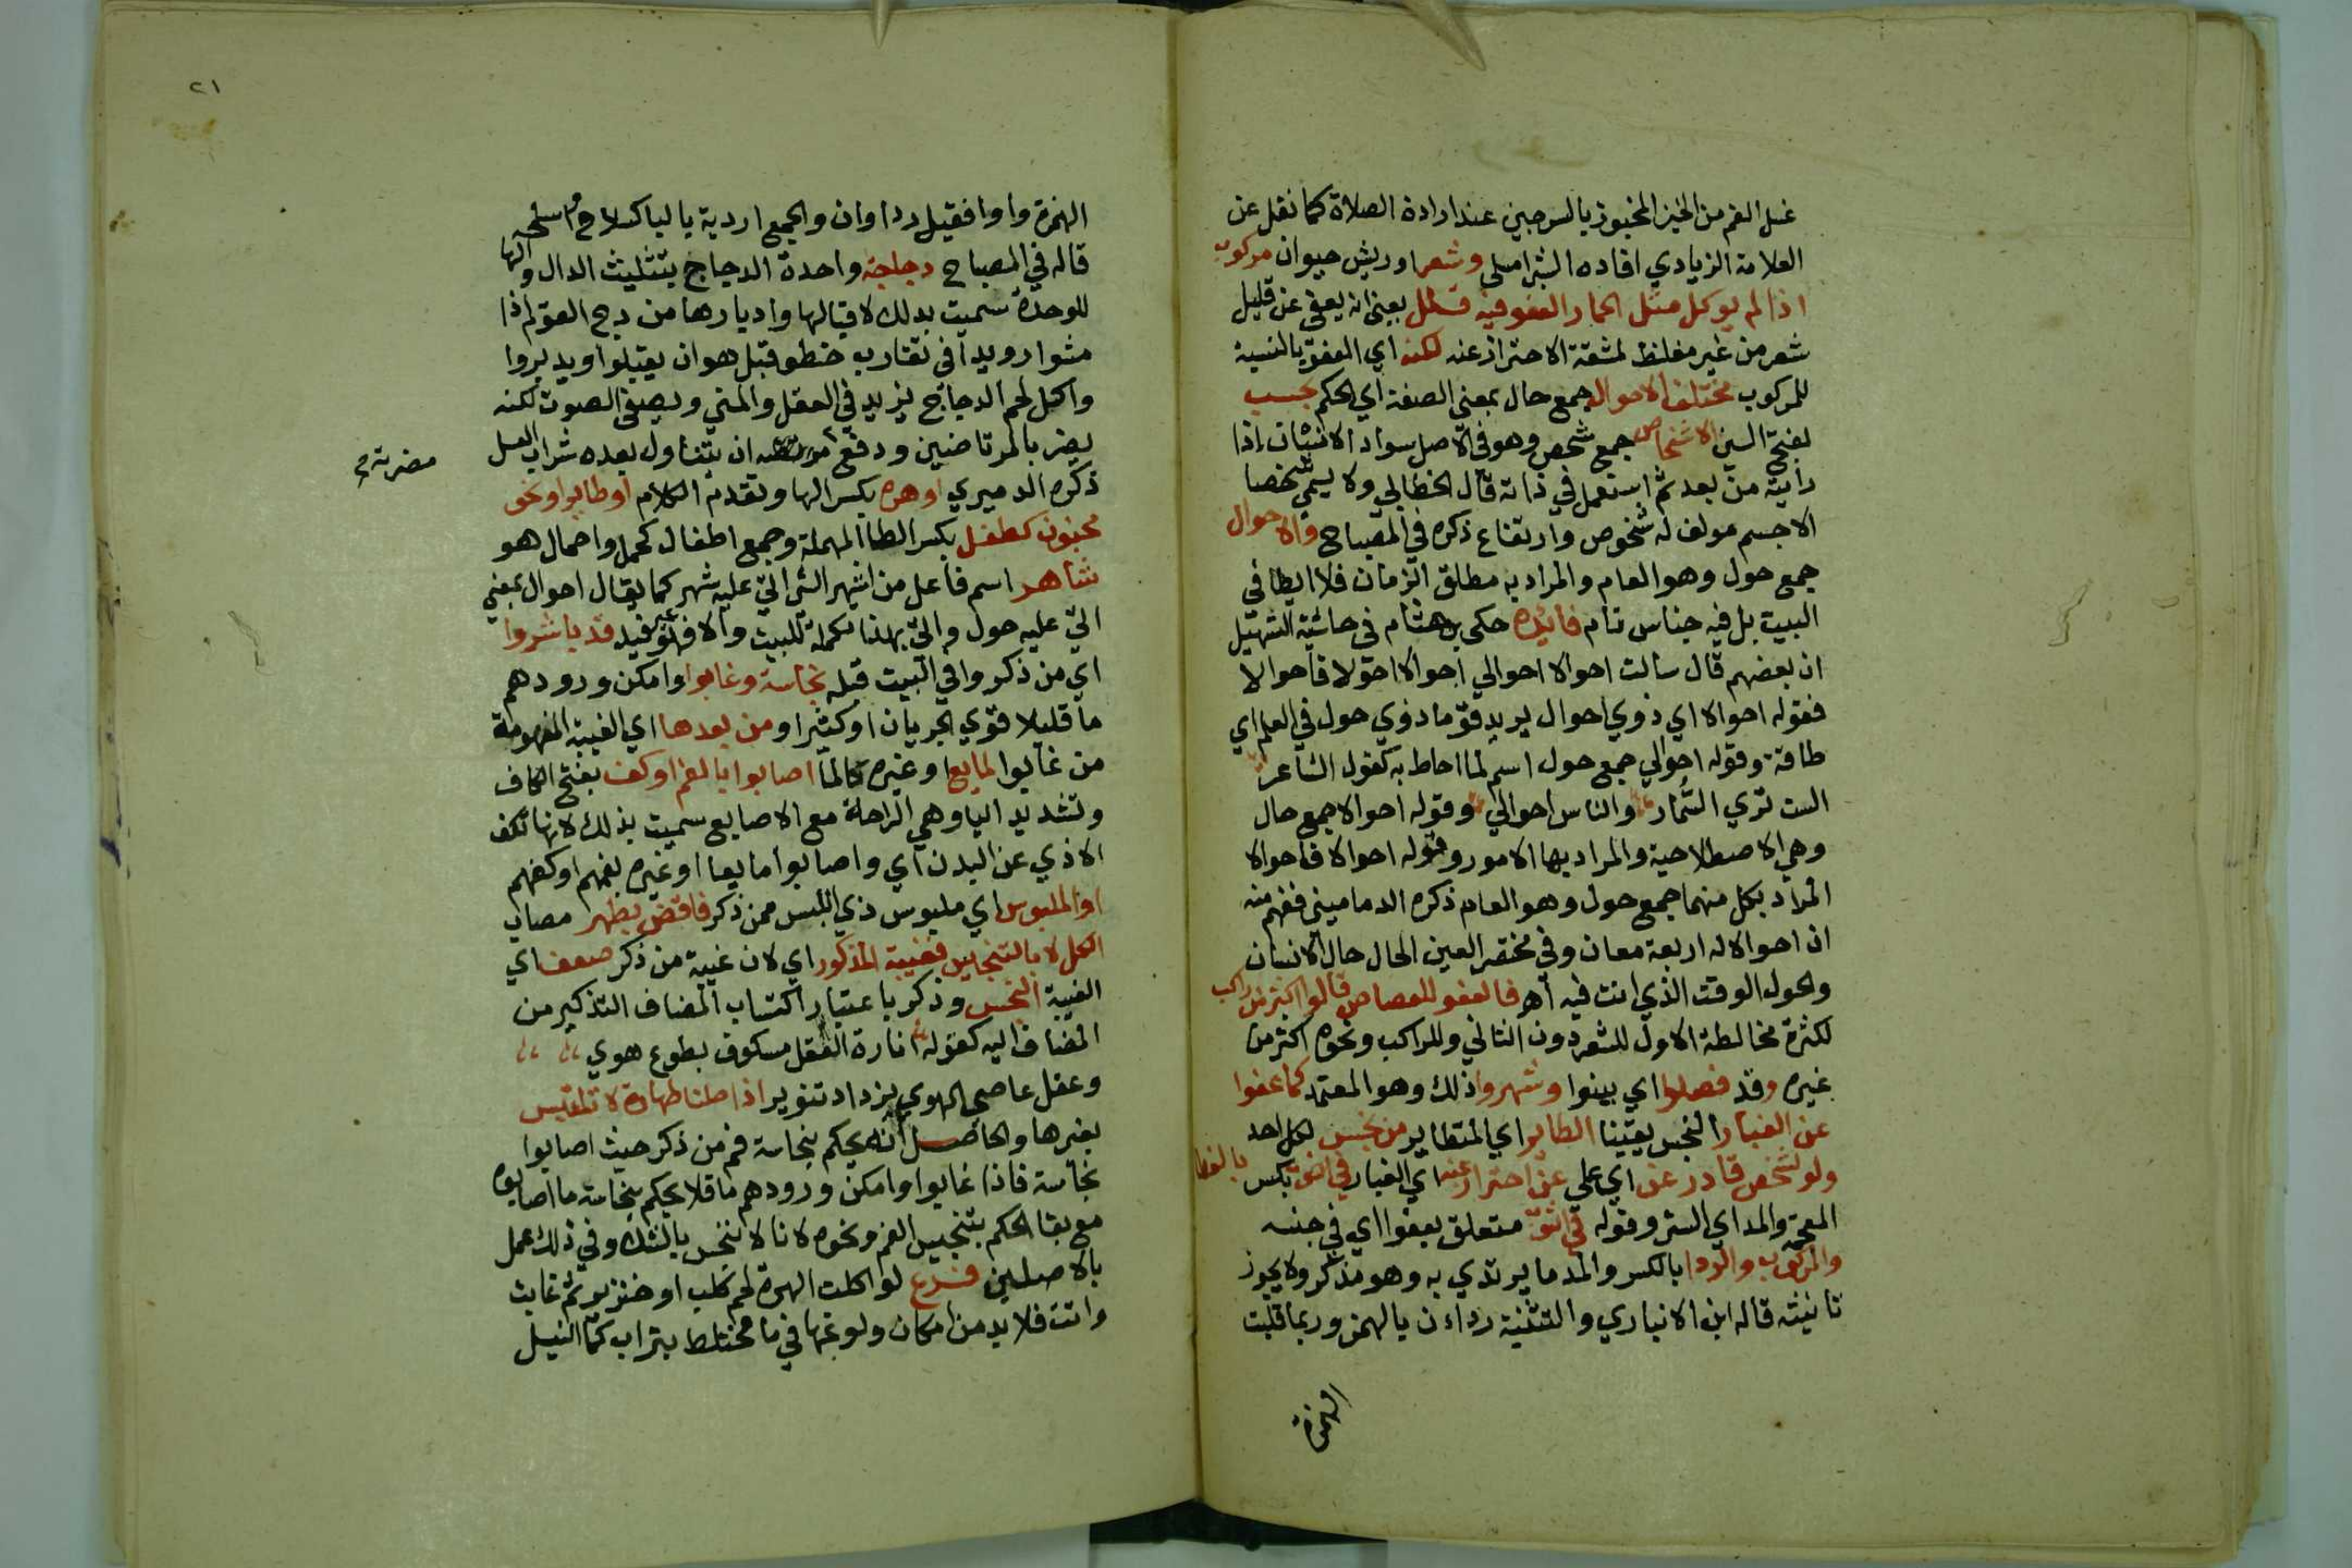 غسل الفم من الخبز المخبوز بالسرجين عند ارادة الصلاة كما نقل عن
العلامة الزيادي افاده الشبراملسي وشعر او ريش حيوان مركوب
اذا لم يوكل مثل الحمار العفو فيه قلل يعني انه يعفى عن قليل
شعر من غير مغلظ لمشقة الاحتراز عنه لكنه اي العفو بالنسبة
للمركوب مختلف الاحوال جمع حال بمعنى الصفة اي الحكم بحسب
بفتح السين الاشخاص جمع شخص وهو في الاصل سواد الانسان اذا
رايته من بعد ثم استعمل في ذاته قال الخطابي ولا يسمى شخصا
الا جسم مولف له شخوص وارتفاع ذكره في المصباح والاحوال
جمع حول وهو العام والمراد به مطلق الزمان فلا ايطا في
البيت بل فيه جناس تام فائدة حكى بن هشام في حاشية التسهيل
ان بعضهم قال سالت احوالا احوالي احوالا احولا فاحوالا
فقوله احوالا اي ذوي احوال يريد قوما ذوي حول في العلم اي
طاقة وقوله احوالي جمع حول اسم لما احاط به كقول الشاعر
الست تري السمار والناس احوالي وقوله احوالا جمع حال
وهي الاصطلاحية والمراد بها الامور وقوله احوالا فاحوالا
المراد بكل منهما جمع حول وهو العام ذكره الدماميني ففهم منه
ان احوالا له اربعة معان وفي مختصر العين الحال حال الانسان
والحول الوقت الذي انت فيه اهـ فالعفو للعصاص قالوا اكثر من راكب
لكثرة مخالطة الاول للشعر دون الثاني وللراكب ونحوه اكثر من
غيره وقد فصلوا اي بينوا وشهروا ذلك وهو المعتمد كما عفوا
عن الغبار النجس يقينا الطاير اي المتطاير من نجس لكل احد
ولو لشخص قادر عن اي على عن احتراز عنه اي الغبار في الغطا بكسر
المعجمة والمد اي الستر وقوله في الثوب متعلق بعفوا اي في جنسه
والمركوب والردا بالكسر والمد ما يرتدي به وهو مذكر ولا يجوز
تانيثه قاله ابن الانباري والتثنية رداءان بالهمز وربما قلبت
الهمزة
٢١
الهمزة واوا فقيل رداوان والجمع اردية باليا كسلاح واسلحه
قاله في المصباح دجاجة واحدة الدجاج بتثليث الدال والها
للوحدة سميت بذلك لاقبالها وادبارها من دج القوم اذا
مشوا رويدا في تقارب خطو قبل هو ان يقبلوا ويدبروا
واكل لحم الدجاج يزيد في العقل والمني ويصفي الصوت لكنه
يضر بالمرتاضين ودفع ان يتناول بعده شراب العسل
مضرته
ذكره الدميري او هره بكسر الها وتقدم الكلام او طاير او نحو
مجنون كطفل بكسر الطا المهملة وجمع اطفال كحمل واحمال هو
شاهر اسم فاعل من اشهر الشي اتى عليه شهر كما يقال احوال بمعنى
اتى عليه حول واتى بهذا تكملة للبيت والا فهو غير قيد قد باشروا
اي من ذكروا في البيت قبله نجاسة وغابوا وامكن ورودهم
ما قليلا قوي الجريان او كثيرا ومن بعدها اي الغيبة المفهومة
من غابوا المايع او غيره كالما اصابوا بالفم او كف بفتح الكاف
وتشديد اليا وهي الراحة مع الاصابع سميت بذلك لانها تكف
الاذي عن البدن اي واصابوا مايعا او غيره بفمهم او كفهم
او الملبوس اي ملبوس ذي اللبس ممن ذكر فاقض بطهر مصاب
الكل لا بالتنجيس فغيبة المذكور اي لان غيبة من ذكر صعف اي
الغيبة النجس وذكر باعتبار اكتساب المضاف التذكير من
المضاف اليه كقوله انارة العقل مسكوف بطوع هوي
وعقل عاصي الهوي يزداد تنويرا اذا صلنا طهارة لا تلتبس
بغيرها والحاصل انه يحكم بنجاسة فم من ذكر حيث اصابوا
نجاسة فاذا غابوا وامكن ورودهم ما فلا يحكم بنجاسة ما اصابوه
مع بقا الحكم بتنجيس الفم ونحوه لانا لا ننجس بالشك وفي ذلك عمل
بالاصلين فرع لو اكلت الهرة لحم كلب او خنزير ثم غابت
واتت فلا بد من امكان ولوغها في ما مختلط بتراب كما النيل